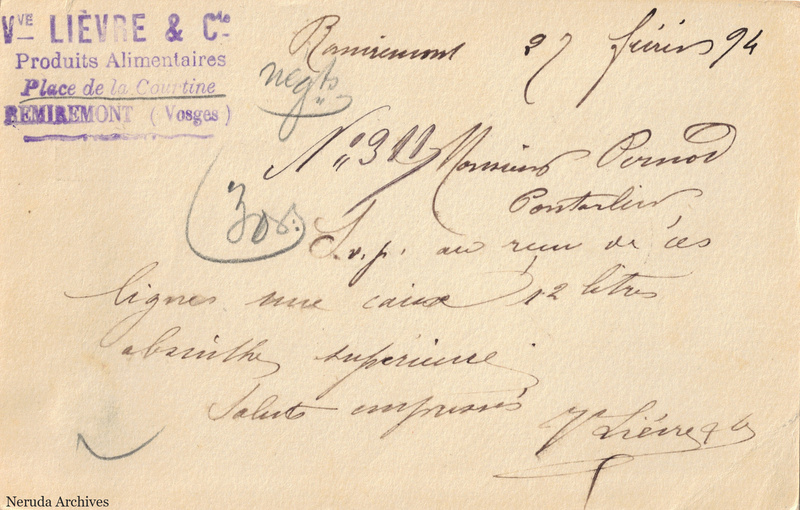 Vve LIÈVRE & Cie
Produits Alimentaires
Place de la Courtine
REMIREMONT (Vosges)
Remiremont 27 février 94
negts
No 311 Monsieur Pernod
Pontarlier
30 s:
S.v.p. au reçu de ces
lignes une caisse 12 litres
absinthe supérieure
Saluts empressés
Ve Lièvre & Cie
Neruda Archives